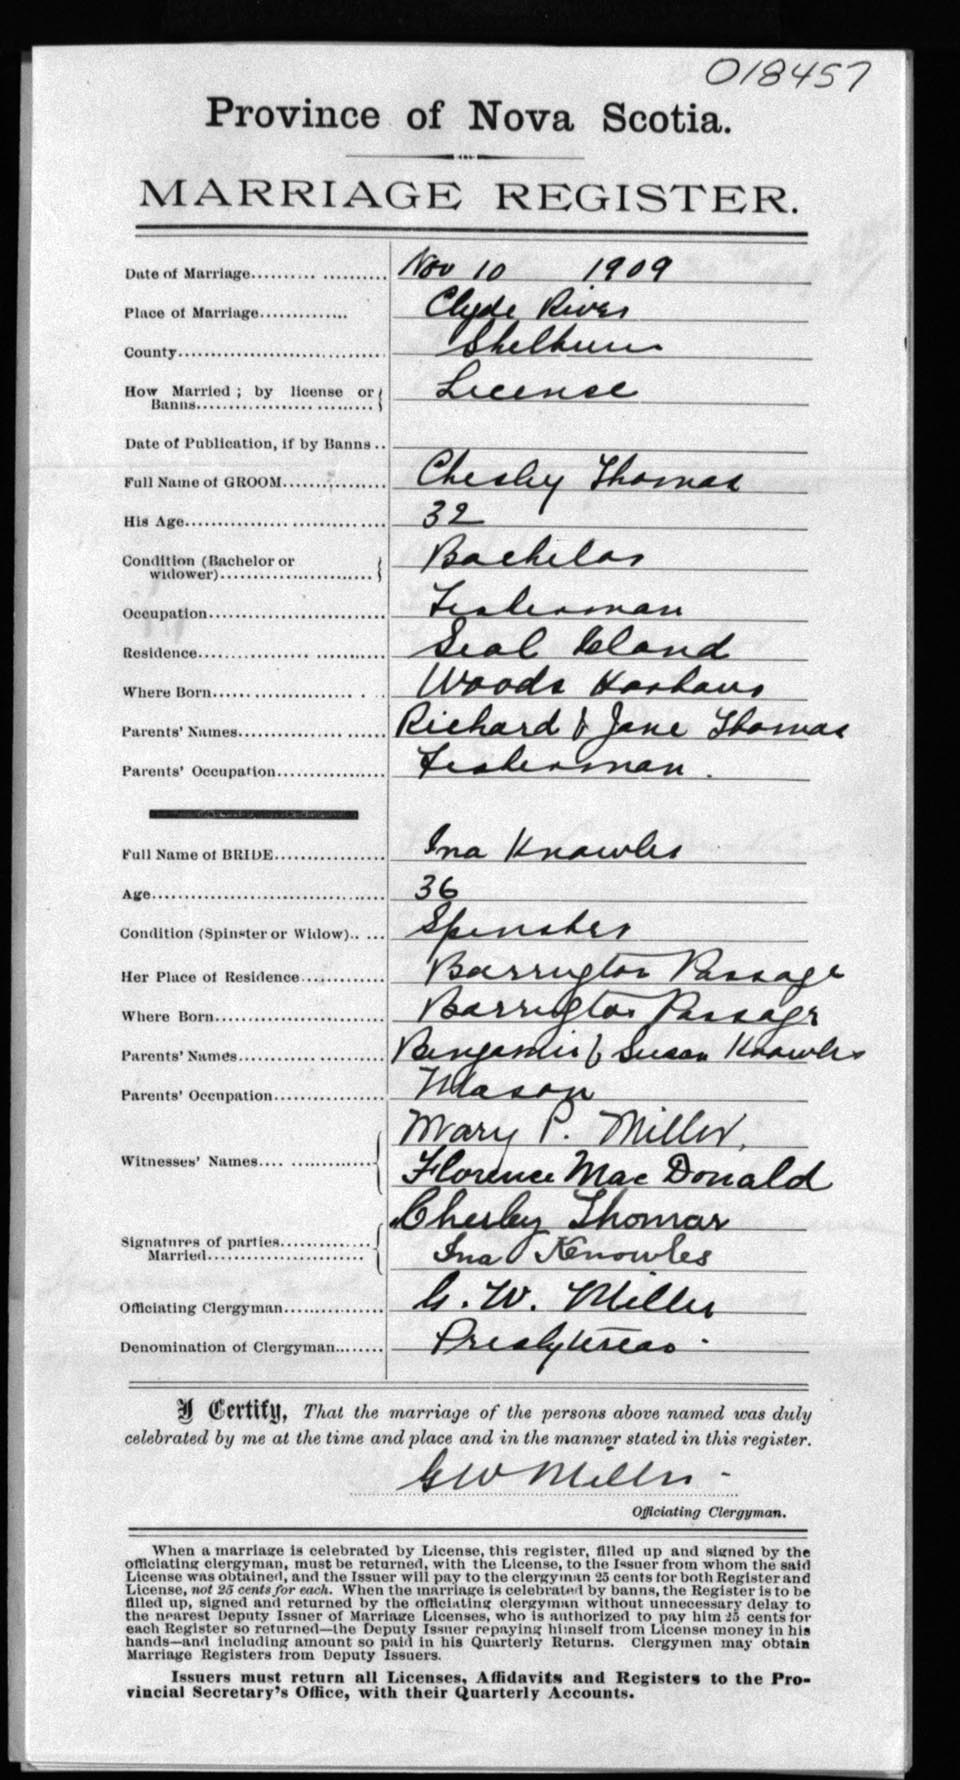 018457
Province of Nova Scotia.
MARRIAGE REGISTER.
Date of Marriage.......... .......... Nov 10 1909
Place of Marriage.............. Clyde River
County................................ Shelburne
How Married ; by license or
Banns.................... ........... License
Date of Publication, if by Banns ..
Full Name of GROOM................ Chesley Thomas
His Age..................... ............ 32
Condition (Bachelor or
widower)......................... Bachelor
Occupation............................ Fisherman
Residence................ ............ Seal Island
Where Born...... ............... . .. Woods Harbour
Parents' Names................ ....... Richard & Jane Thomas
Parents' Occupation................. Fisherman.
Full Name of BRIDE................. Ina Knowles
Age........................................ 36
Condition (Spinster or Widow).. ... Spinster
Her Place of Residence............. Barrington Passage
Where Born........................... Barrington Passage
Parents' Names................ ....... Benjamin & Susan Knowles
Parents' Occupation................. Mason
Mary P. Miller,
Witnesses' Names.... ............... Florence Mac Donald
Chesley Thomas
Signatures of parties..............
Married.......................... Ina Knowles
Officiating Clergyman............... G. W. Miller
Denomination of Clergyman........ Presbyterian.
I Certify, That the marriage of the persons above named was duly
celebrated by me at the time and place and in the manner stated in this register.
G W Miller -
Officiating Clergyman.
When a marriage is celebrated by License, this register, filled up and signed by the
officiating clergyman, must be returned, with the License, to the Issuer from whom the said
License was obtained, and the Issuer will pay to the clergyman 25 cents for both Register and
License, not 25 cents for each. When the marriage is celebrated by banns, the Register is to be
filled up, signed and returned by the officiating clergyman without unnecessary delay to
the nearest Deputy Issuer of Marriage Licenses, who is authorized to pay him 25 cents for
each Register so returned—the Deputy Issuer repaying himself from License money in his
hands—and including amount so paid in his Quarterly Returns. Clergymen may obtain
Marriage Registers from Deputy Issuers.
Issuers must return all Licenses, Affidavits and Registers to the Pro-
vincial Secretary's Office, with their Quarterly Accounts.